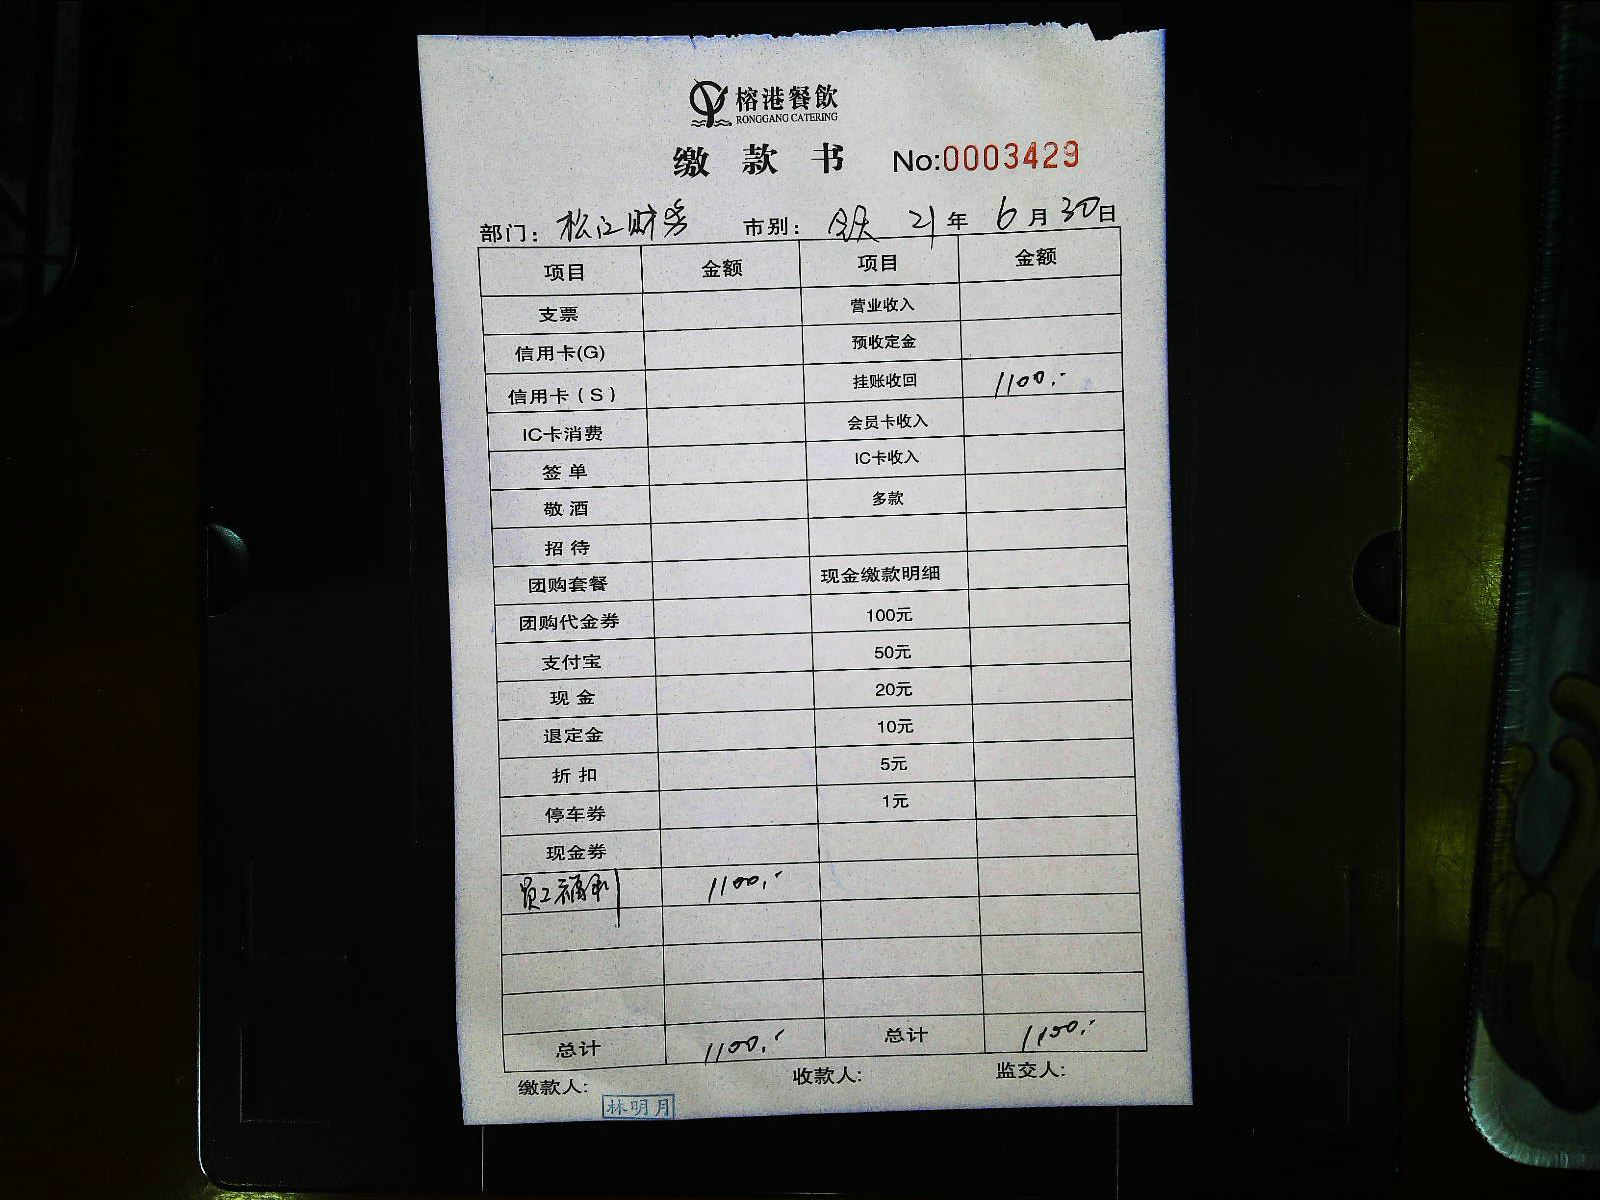 榕港餐飲
RONGGANG CATERING
缴款书 No:0003429
部门：松江财务 市别： 21年6月30日
项目 金额 项目 金额
支票 营业收入
信用卡(G) 预收定金
信用卡（S） 挂账收回 1100.-
IC卡消费 会员卡收入
签单 IC卡收入
敬酒 多款
招待
团购套餐 现金缴款明细
团购代金券 100元
支付宝 50元
现金 20元
退定金 10元
折扣 5元
停车券 1元
现金券
员工福利 1100.-
总计 1100.- 总计 1100.-
缴款人： 收款人： 监交人：
林明月